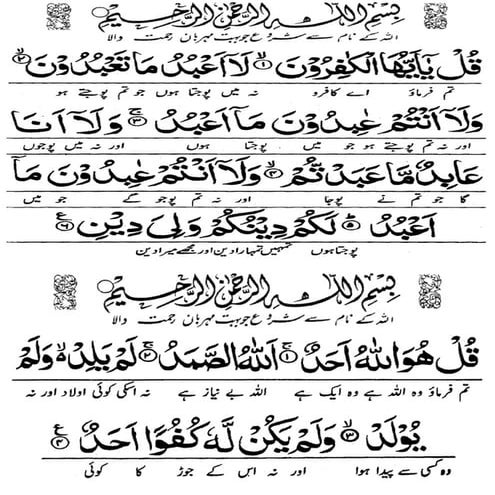 بِسْمِ اللّٰهِ الرَّحْمٰنِ الرَّحِيْمِ
اللہ کے نام سے شروع جو بہت مہربان رحمت والا
قُلْ يٰۤاَيُّهَا الْكٰفِرُوْنَ ۙ۱ لَاۤ اَعْبُدُ مَا تَعْبُدُوْنَ ۙ۲
تم فرماؤ اے کافرو نہ میں پوجتا ہوں جو تم پوجتے ہو
وَلَاۤ اَنْتُمْ عٰبِدُوْنَ مَاۤ اَعْبُدُ ۚ۳ وَلَاۤ اَنَا
اور نہ تم پوجتے ہو جو میں پوجتا ہوں اور نہ میں پوجوں
عَابِدٌ مَّا عَبَدْتُّمْ ۙ۴ وَلَاۤ اَنْتُمْ عٰبِدُوْنَ مَاۤ
گا جو تم نے پوجا اور نہ تم پوجو گے جو میں
اَعْبُدُ ؕ۵ لَكُمْ دِيْنُكُمْ وَلِىَ دِيْنِ ۶ع
پوجتا ہوں تمہیں تمہارا دین اور مجھے میرا دین
بِسْمِ اللّٰهِ الرَّحْمٰنِ الرَّحِيْمِ
اللہ کے نام سے شروع جو بہت مہربان رحمت والا
قُلْ هُوَ اللّٰهُ اَحَدٌ ۚ۱ اَللّٰهُ الصَّمَدُ ۚ۲ لَمْ يَلِدْ ۙ وَلَمْ
تم فرماؤ وہ اللہ ہے وہ ایک ہے اللہ بے نیاز ہے نہ اسکی کوئی اولاد اور نہ
يُوْلَدْ ۙ۳ وَلَمْ يَكُنْ لَّهٗ كُفُوًا اَحَدٌ ۴ع
وہ کسی سے پیدا ہوا اور نہ اس کے جوڑ کا کوئی